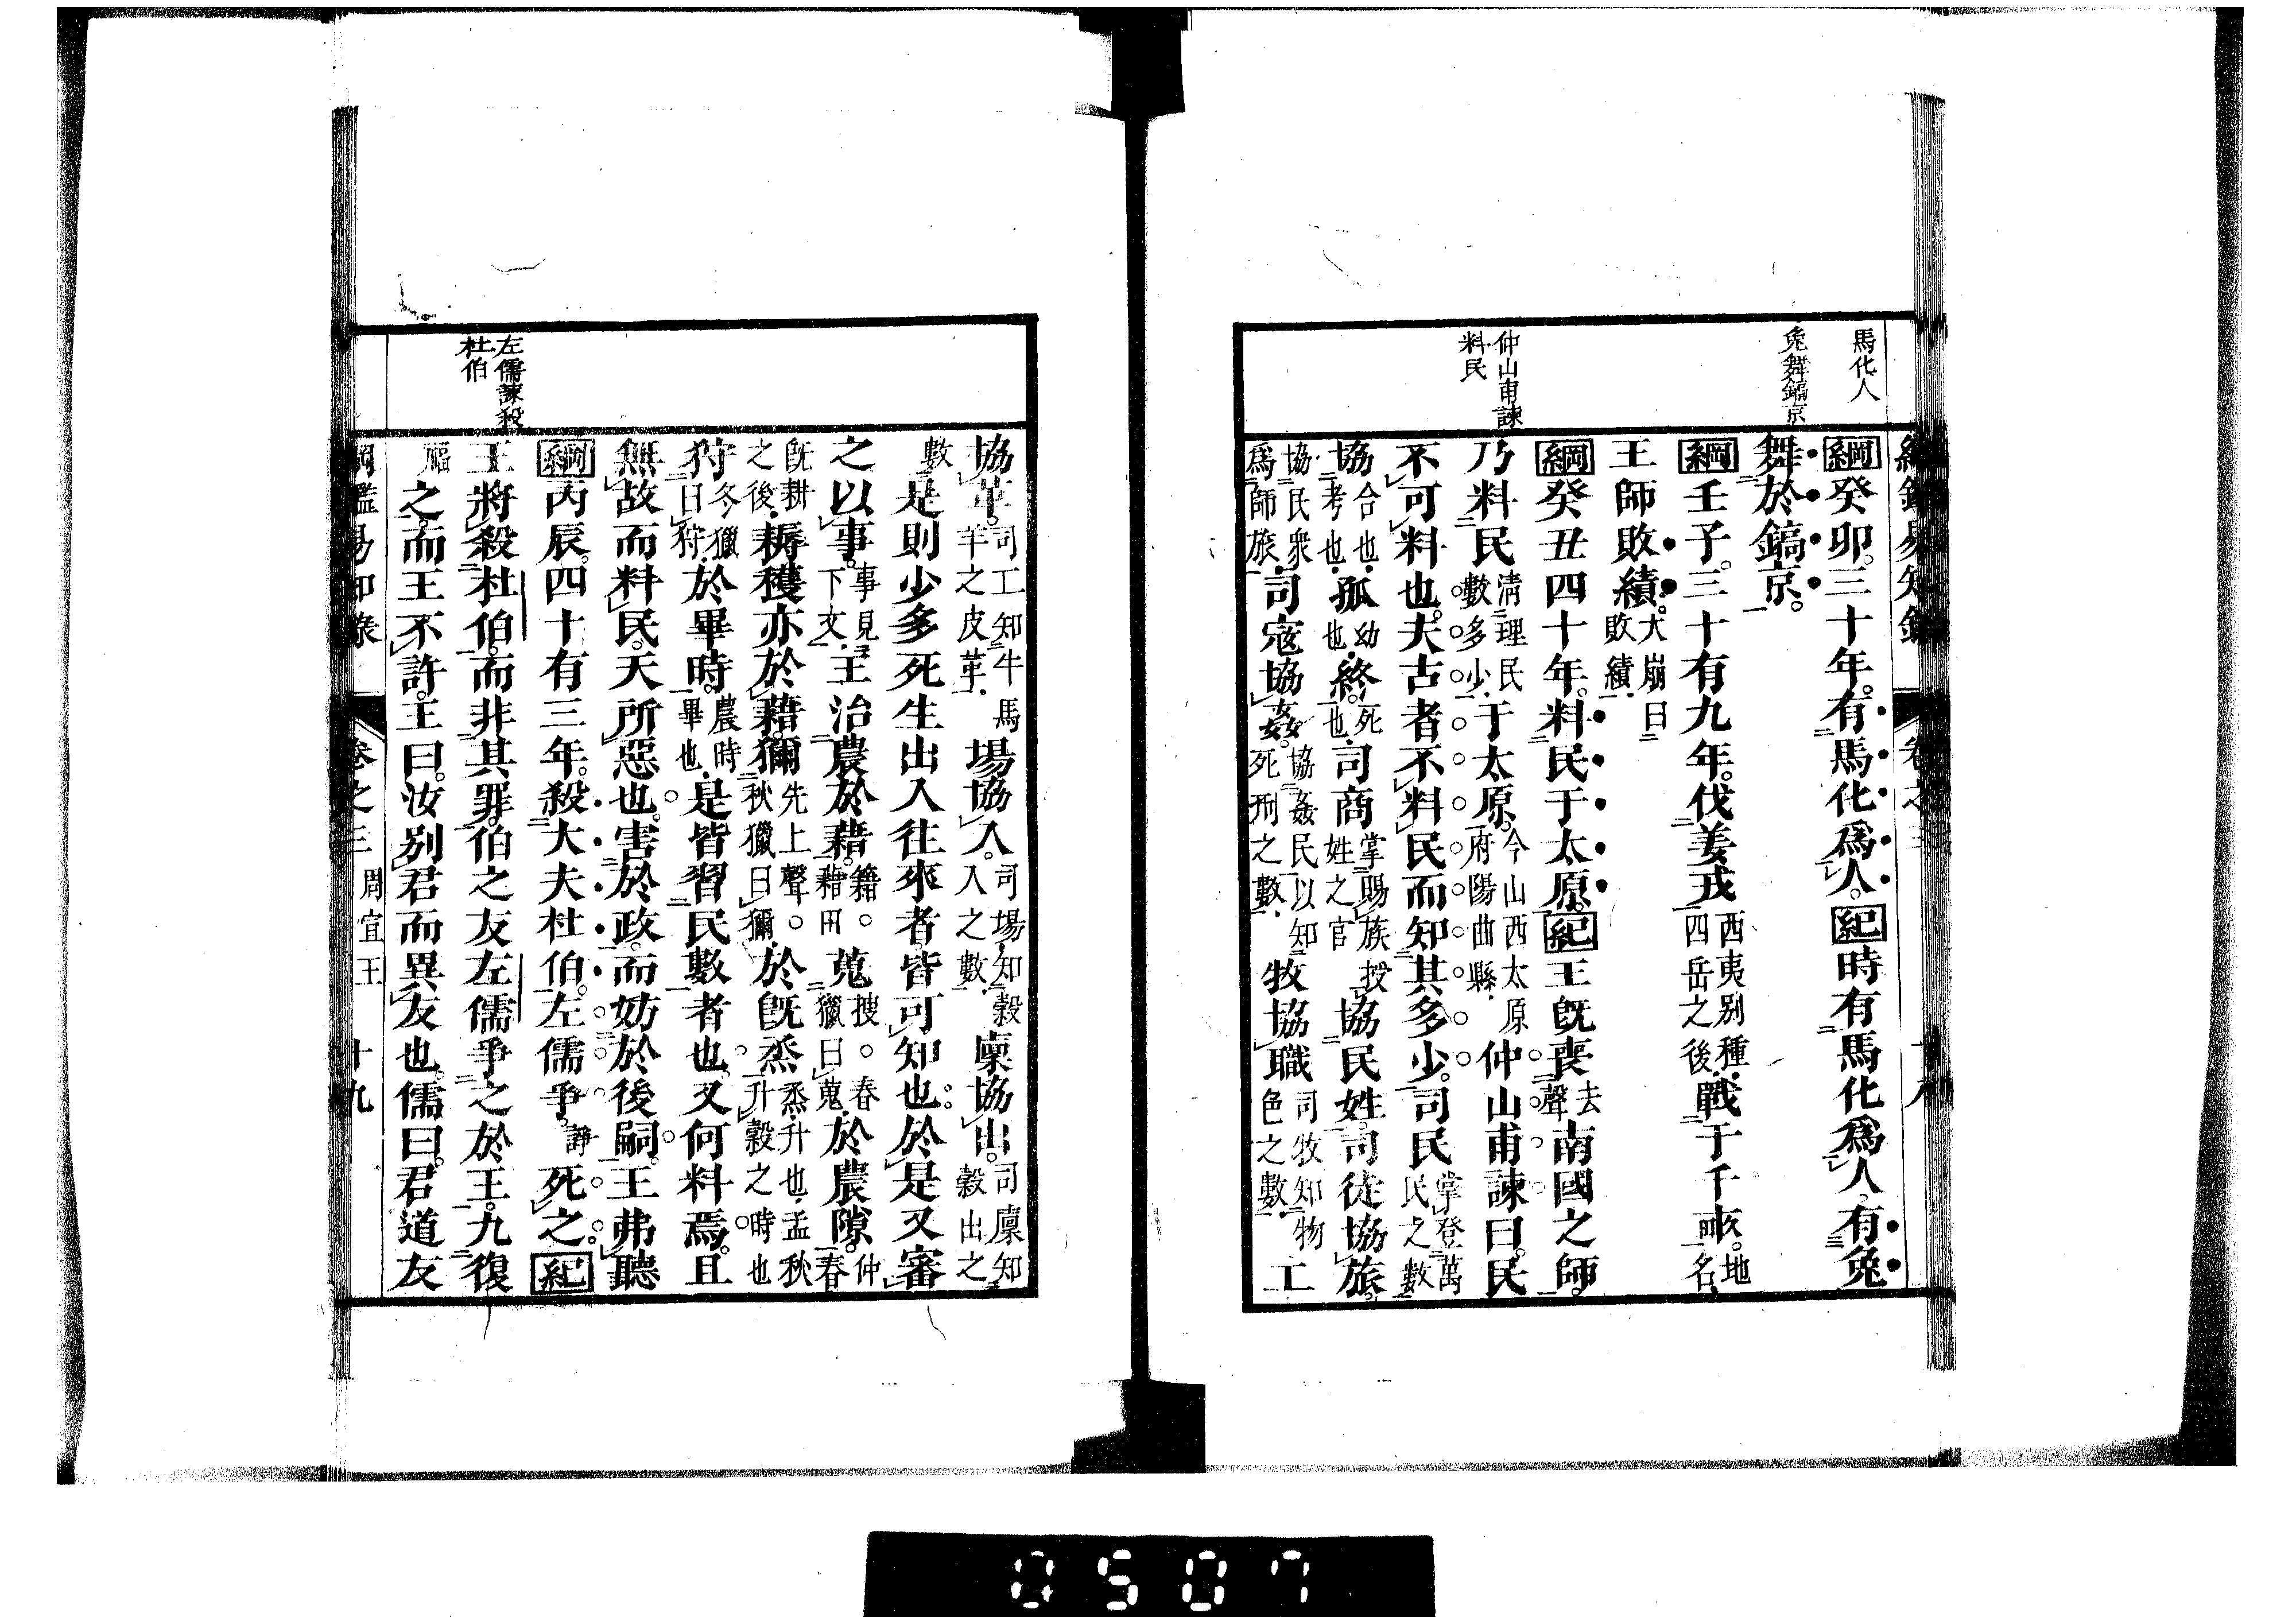 馬化人
兔舞鎬京
仲山甫諫
料民
綱鑑易知錄 卷之三 十八
綱癸卯。三十年。有馬化爲人。紀時有馬化爲人。有兔
舞於鎬京。
綱壬子。三十有九年。伐姜戎西夷别種。四岳之後戰于千畝。地名。
王師敗績。大崩曰敗績。
綱癸丑四十年。料民于太原。紀王旣喪去聲南國之師。
乃料民清理民數多少。于太原。今山西太原府陽曲縣。仲山甫諫曰。民
不可料也。夫古者不料民而知其多少。司民掌登萬民之數
協合也。考也。孤幼也。終。死也。司商掌賜族授姓之官協民姓。司徒協旅。
協民衆爲師旅。司寇協姦。協姦民以知死刑之數。牧協職司牧知物色之數。工
左儒諫殺
杜伯
協革。司工知牛馬羊之皮革。場協入。司場知穀入之數。廩協出。司廪知穀出之
數是則少多死生出入往來者。皆可知也。於是又審
之以事。事見下文。王治農於藉。籍。藉田蒐搜。春獵曰蒐。於農隙。仲春
旣耕之後。耨穫亦於藉。獮先上聲。秋獵曰獮。於旣烝烝。升也。孟秋升穀之時也
狩冬獵曰狩於畢時。農時畢也。是皆習民數者也。又何料焉。且
無故而料民。天所惡也。害於政。而妨於後嗣。王弗聽
綱丙辰。四十有三年。殺大夫杜伯。左儒爭諍死之。紀
王將殺杜伯。而非其罪。伯之友左儒爭之於王。九復
之。而王不許。王曰。汝别君而異友也。儒曰。君道友
綱鑑易知錄 卷之三 周宣王 十九
0507